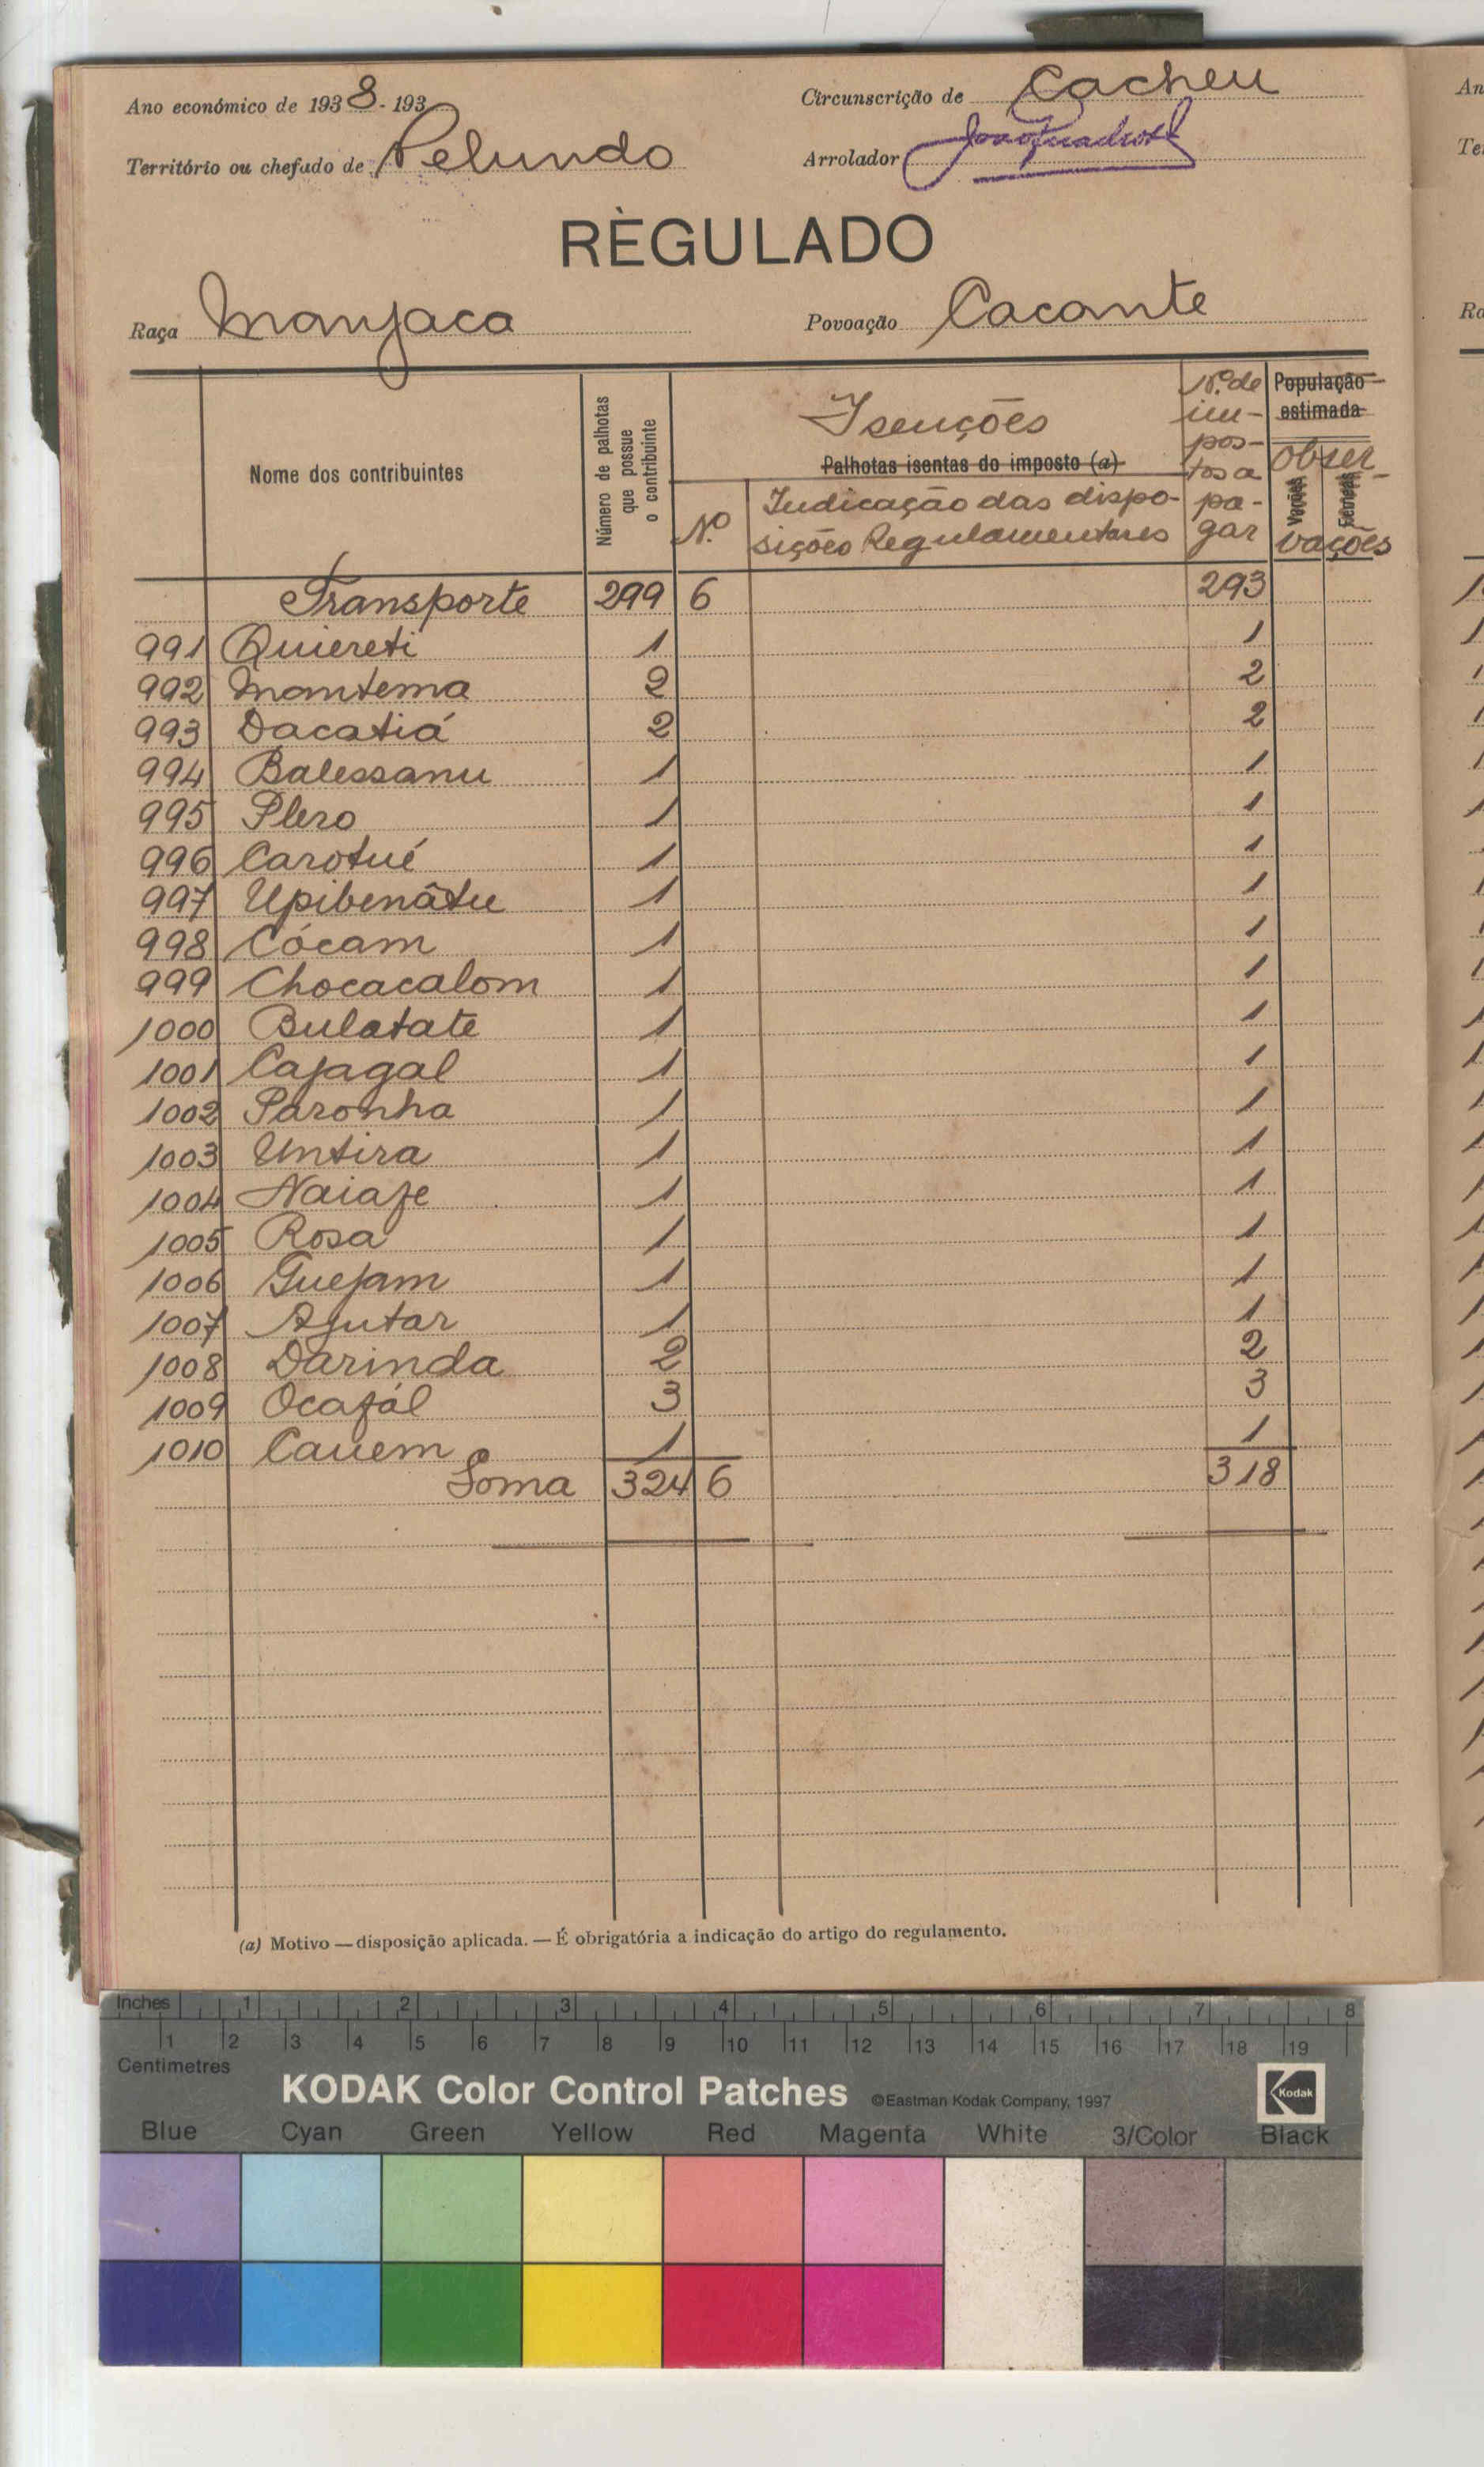 Ano económico de 1938-193
Circunscrição de Cacheu
Território ou chefado de Pelundo
Arrolador
RÈGULADO
Raça Manjaca
Povoação Cacante
Nome dos contribuintes
Número de palhotas
que possue
o contribuinte
Isenções
Palhotas isentas do imposto (a)
Nº
Indicação das dispo-
sições Regulamentares
Nº de
im-
pos-
tos a
pa-
gar
População
estimada
Obser-
vações
Transporte 299 6 293
991 Quiereti 1 1
992 Mantema 2 2
993 Dacatiá 2 2
994 Balessanu 1 1
995 Plero 1 1
996 Carotué 1 1
997 Upibenâtu 1 1
998 Cócam 1 1
999 Chocacalom 1 1
1000 Bulatate 1 1
1001 Cajagal 1 1
1002 Paronha 1 1
1003 Untira 1 1
1004 Naiaje 1 1
1005 Rosa 1 1
1006 Guejam 1 1
1007 Ajutar 1 1
1008 Darinda 2 2
1009 Ocajál 3 3
1010 Cauem 1 1
Soma 324 6 318
(a) Motivo — disposição aplicada. — É obrigatória a indicação do artigo do regulamento.
Inches 1 2 3 4 5 6 7 8
1 2 3 4 5 6 7 8 9 10 11 12 13 14 15 16 17 18 19
Centimetres
KODAK Color Control Patches ©Eastman Kodak Company, 1997 Kodak
Blue Cyan Green Yellow Red Magenta White 3/Color Black